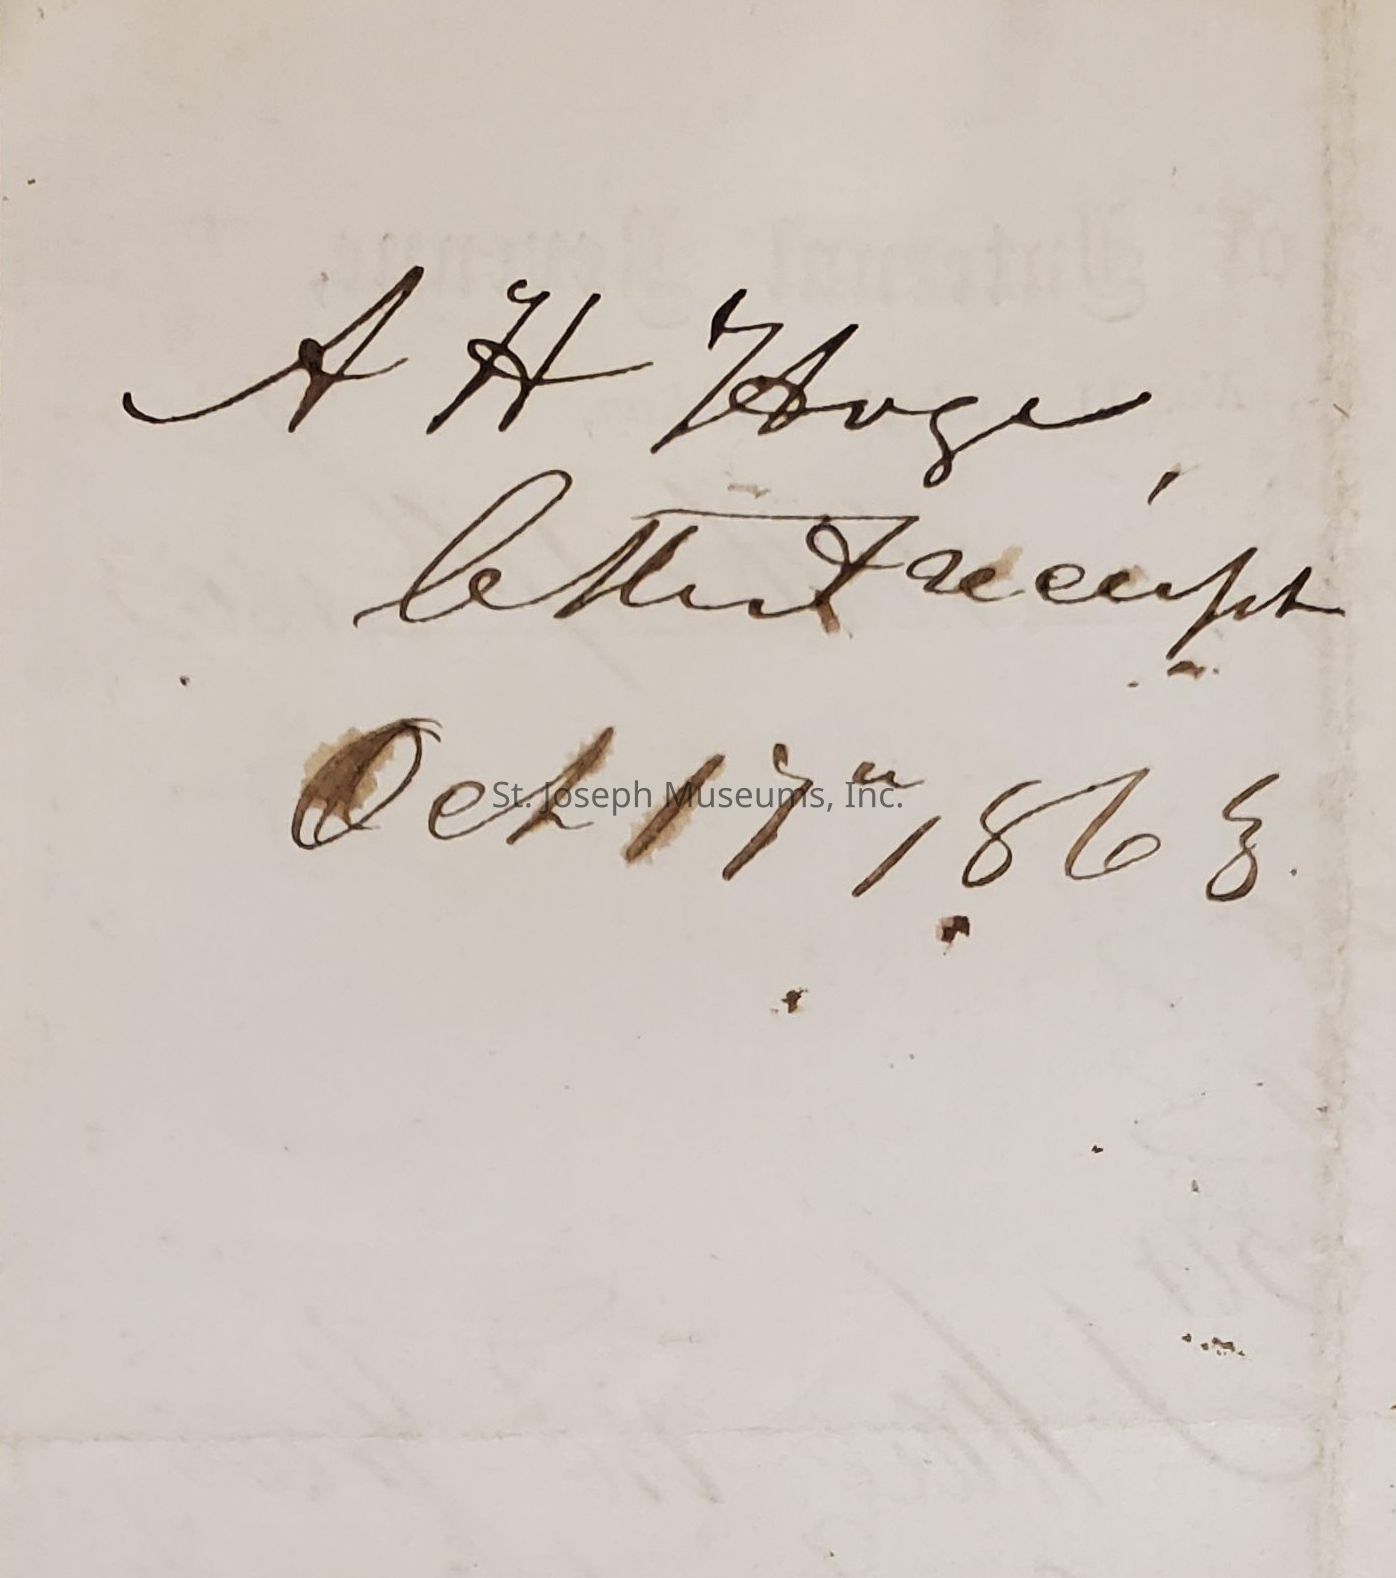 A H Hoge
letter & receipt
Oct 17" 1863.
St. Joseph Museums, Inc.